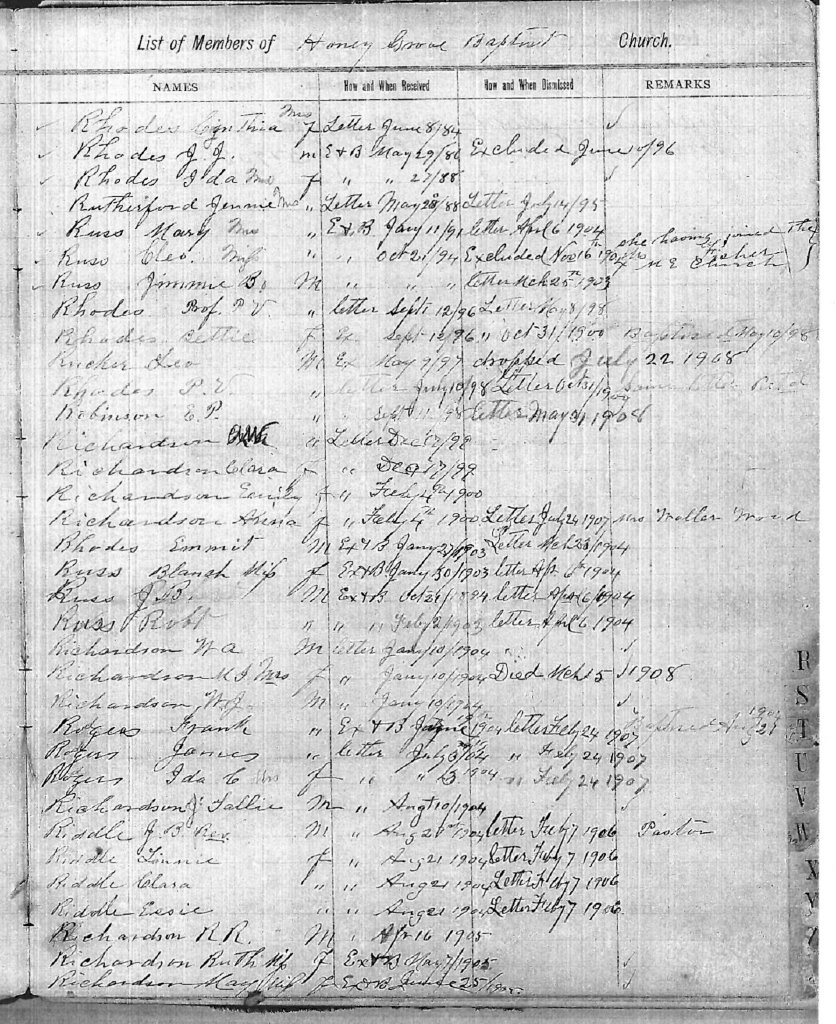 List of Members of Honey Grove Baptist Church.
NAMES How and When Received How and When Dismissed REMARKS
Rhodes Cynthia Mrs f Letter June 8/84
Rhodes J. J. m E & B May 29/86 Excluded June 10/96
Rhodes Ida Mrs f " " 27/88
Rutherford Jennie Mrs " Letter May 28/88 Letter July 14/95
Russ Mary Mrs " Ex B Jany 11/91 letter April 6 1904
Russ Cleo. Miss " " Oct 21/94 Excluded Nov 16th she having joined the M E Church
Russ Jimmie Bo M " " " letter Mch 25th 1903
Rhodes Prof. P V. " letter Sept 12/96 Letter May 8/98
Rhodes f Ex Sept 12/96 " Oct 31/1900 Baptised May 10/98
Rucker Leo M Ex May 9/97 dropped July 22 1908
Rhodes P. V. " letter July 10/98 Letter Oct 31/1900
Robinson E. P. " " Sept 11/98 letter May 31 1908
Richardson " Letter Dec 17/99
Richardson Clara f " Dec 17/99
Richardson Emily f " Feby 4th 1900
Richardson f " Feby 4th 1900 Letter July 24 1907 Mrs Waller Ward
Rhodes Emmit M Ex & B Jany 27/1903 Letter Mch 23/1904
Russ Blanch Miss f Ex & B Jany 30/1903 letter Apr 6th 1904
Russ J. B. M Ex & B Oct 21/1894 letter April 6/1904
Russ Robt " " " Feby 2/1903 letter April 6 1904
Richardson W A M letter Jany 10/1904
Richardson M J Mrs f " Jany 10/1904 Died Mch 15 1908
Richardson W. J. M " Jany 10/1904
Rogers Frank " Ex & B 1904 letter Feby 24 1907 Baptised Aug 28 1904
Rogers James " letter July 3rd/04 " Feby 24 1907
Rogers Ida C Mrs f " " 3 1904 " Feby 24 1907
Richardson J. Tallie M " Augt 10/1904
Riddle J B Rev. M " Aug 21st 1904 letter Feby 7 1906 Pastor
Riddle Linnie f " Aug 21 1904 letter Feby 7 1906
Riddle Clara " " Aug 21 1904 Letter Feby 7 1906
Riddle Essie " " Aug 21 1904 Letter Feby 7 1906
Richardson R. R. M " Apr 16 1905
Richardson Ruth Miss f Ex & B May 7/1905
Richardson May Miss f Ex & B June 25/1905
R
S
T
U
V
W
X
Y